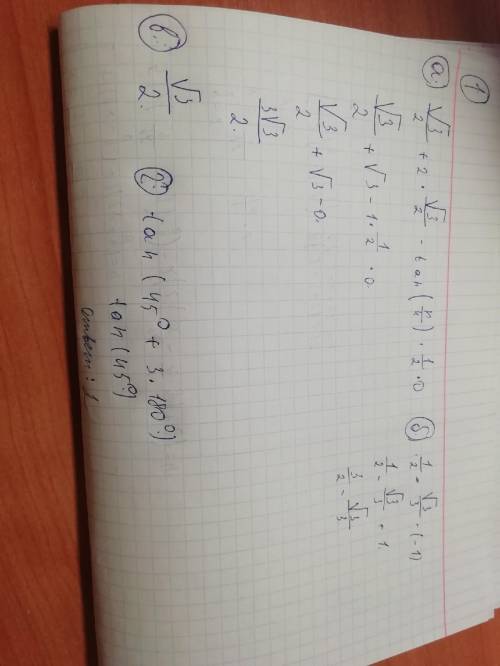 1
а. √3/2 + 2 · √3/2 - tan(π/4) · 1/2 · 0
√3/2 + √3 - 1 · 1/2 · 0
√3/2 + √3 - 0.
3√3/2.
б 1/2 - √3/3 - (-1)
1/2 - √3/3 + 1.
3/2 - √3/3
в. √3/2.
г. tan(45° + 3 · 180°)
tan(45°)
ответ: 1